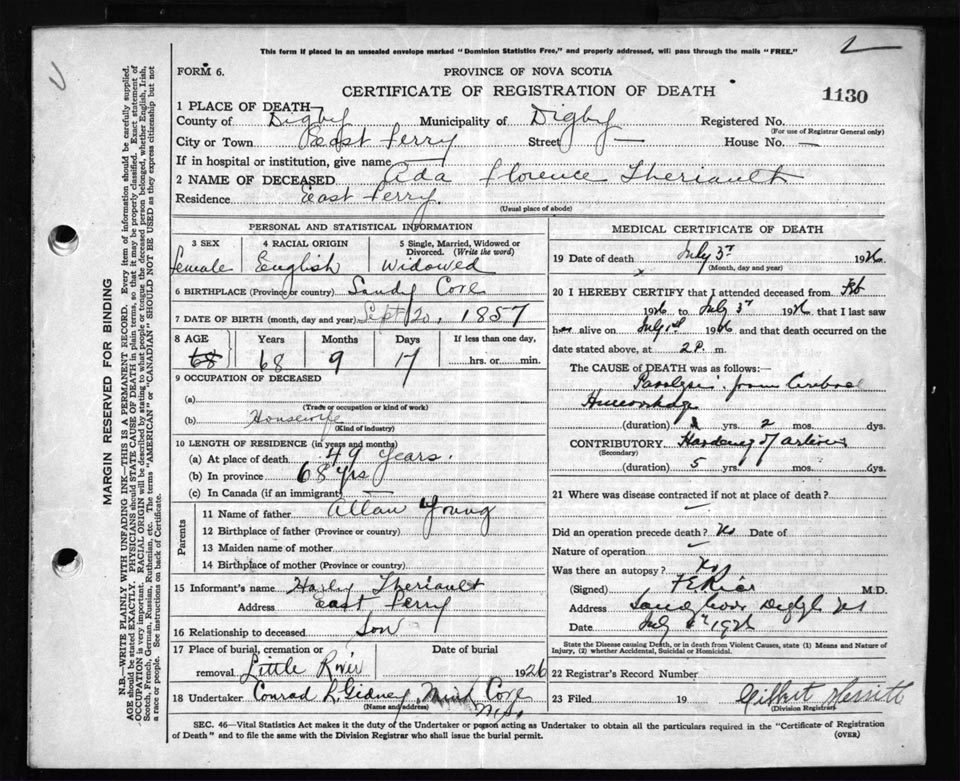 This form if placed in an unsealed envelope marked "Dominion Statistics Free," and properly addressed, will pass through the mails "FREE."
FORM 6.
PROVINCE OF NOVA SCOTIA
CERTIFICATE OF REGISTRATION OF DEATH
1130
1 PLACE OF DEATH—
County of Digby Municipality of Digby Registered No.
(For use of Registrar General only)
City or Town East Ferry Street — House No. —
If in hospital or institution, give name —
2 NAME OF DECEASED Ada Florence Theriault
Residence East Ferry.
(Usual place of abode)
PERSONAL AND STATISTICAL INFORMATION
3 SEX 4 RACIAL ORIGIN 5 Single, Married, Widowed or Divorced. (Write the word)
female English Widowed
6 BIRTHPLACE (Province or country) Sandy Cove
7 DATE OF BIRTH (month, day and year) Sept 20, 1857
8 AGE Years Months Days If less than one day,
68 68 9 17 hrs. or min.
9 OCCUPATION OF DECEASED
(a)
(Trade or occupation or kind of work)
(b) Housewife
(Kind of industry)
10 LENGTH OF RESIDENCE (in years and months)
(a) At place of death 49 years.
(b) In province 68 yrs
(c) In Canada (if an immigrant) —
Parents
11 Name of father Allan Young
12 Birthplace of father (Province or country)
13 Maiden name of mother
14 Birthplace of mother (Province or country)
15 Informant's name Harley Theriault
Address East Ferry
16 Relationship to deceased Son
17 Place of burial, cremation or removal Little River Date of burial 1926
18 Undertaker Conrad R. Gidney, Mink Cove
(Name and address)
MEDICAL CERTIFICATE OF DEATH
19 Date of death July 3rd 1926
(Month, day and year)
20 I HEREBY CERTIFY that I attended deceased from Feb
1926 to July 3rd 1926, that I last saw
her alive on July 1st 1926 and that death occurred on
date stated above, at 2 P. m.
The CAUSE of DEATH was as follows:—
Paralysis from Cerebral
Hemorrhage
(duration) yrs. 2 mos. dys.
CONTRIBUTORY Hardening of arteries
(Secondary)
(duration) 5 yrs. mos. dys.
21 Where was disease contracted if not at place of death?
Did an operation precede death? No Date of
Nature of operation
Was there an autopsy? No
(Signed) F E Rice M.D.
Address Sandy Cove Digby NS
Date July 1926
State the Disease causing Death, or in death from Violent Causes, state (1) Means and Nature of Injury, (2) whether Accidental, Suicidal or Homicidal.
22 Registrar's Record Number
23 Filed 19 Gilbert Merritt
(Division Registrar)
SEC. 46—Vital Statistics Act makes it the duty of the Undertaker or person acting as Undertaker to obtain all the particulars required in the "Certificate of Registration
of Death" and to file the same with the Division Registrar who shall issue the burial permit.
(OVER)
MARGIN RESERVED FOR BINDING
N.B.—WRITE PLAINLY WITH UNFADING INK—THIS IS A PERMANENT RECORD. Every item of information should be carefully supplied.
AGE should be stated EXACTLY. PHYSICIANS should STATE CAUSE OF DEATH in plain terms, so that it may be properly classified. Exact statement of
OCCUPATION is very important. RACIAL ORIGIN will be described by stating to what people or tongue the deceased person belonged, whether English, Irish,
Scotch, French, German, Russian, Ruthenian, etc. The terms "AMERICAN" or "CANADIAN" SHOULD NOT BE USED as they express citizenship but not
a race or people. See instructions on back of Certificate.